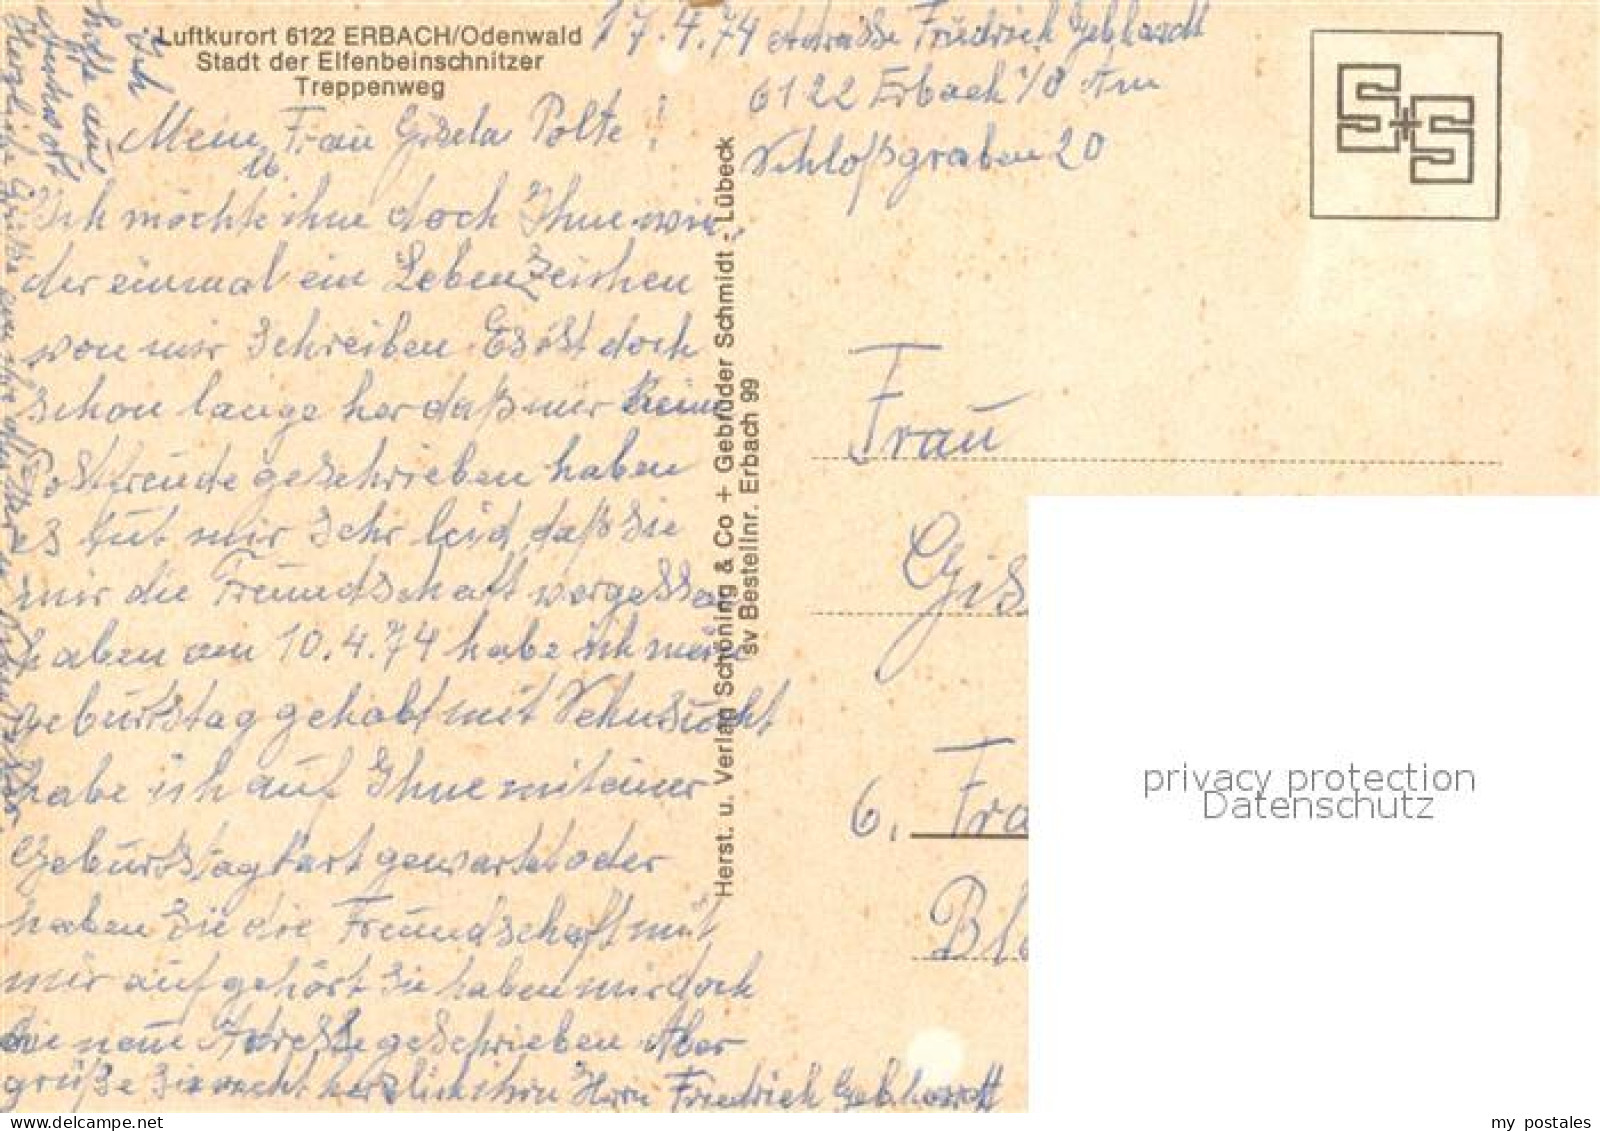 Luftkurort 6122 ERBACH/Odenwald
Stadt der Elfenbeinschnitzer
Treppenweg
17.4.74 Adraßse Friedrich Gebhardt
6122 Erbach i/O Am
Schloßgraben 20
Mein Frau Gisela Polte!
Ich möchte ihne doch Ihne wie
der einmal ein Leben Zeichen
von mir Schreiben Es ist doch
schon lange her daß mir Keine
Postfreude geschrieben haben
es tut mir Sehr leid, daß Sie
mir die Freundschaft vergessen
haben am 10.4.74 habe ich mein
geburtstag gehabt mit Sehnsucht
habe ich auf Ihne mit einer
Geburtstag Kart gewartet oder
haben Sie die Freundschaft mit
mir auf gehört Sie haben mir doch
die neue Adresse geschrieben Aber
grüße Sie recht herzlich ihrn Herrn Friedrich Gebhardt
Ich
hoffe auf
Herzliche Grüße
Herst. u. Verlag Schöning & Co + Gebrüder Schmidt - Lübeck
sv Bestellnr. Erbach 99
S+S
Frau
Gis
6. Fra
Bl
privacy protection
Datenschutz
my postales